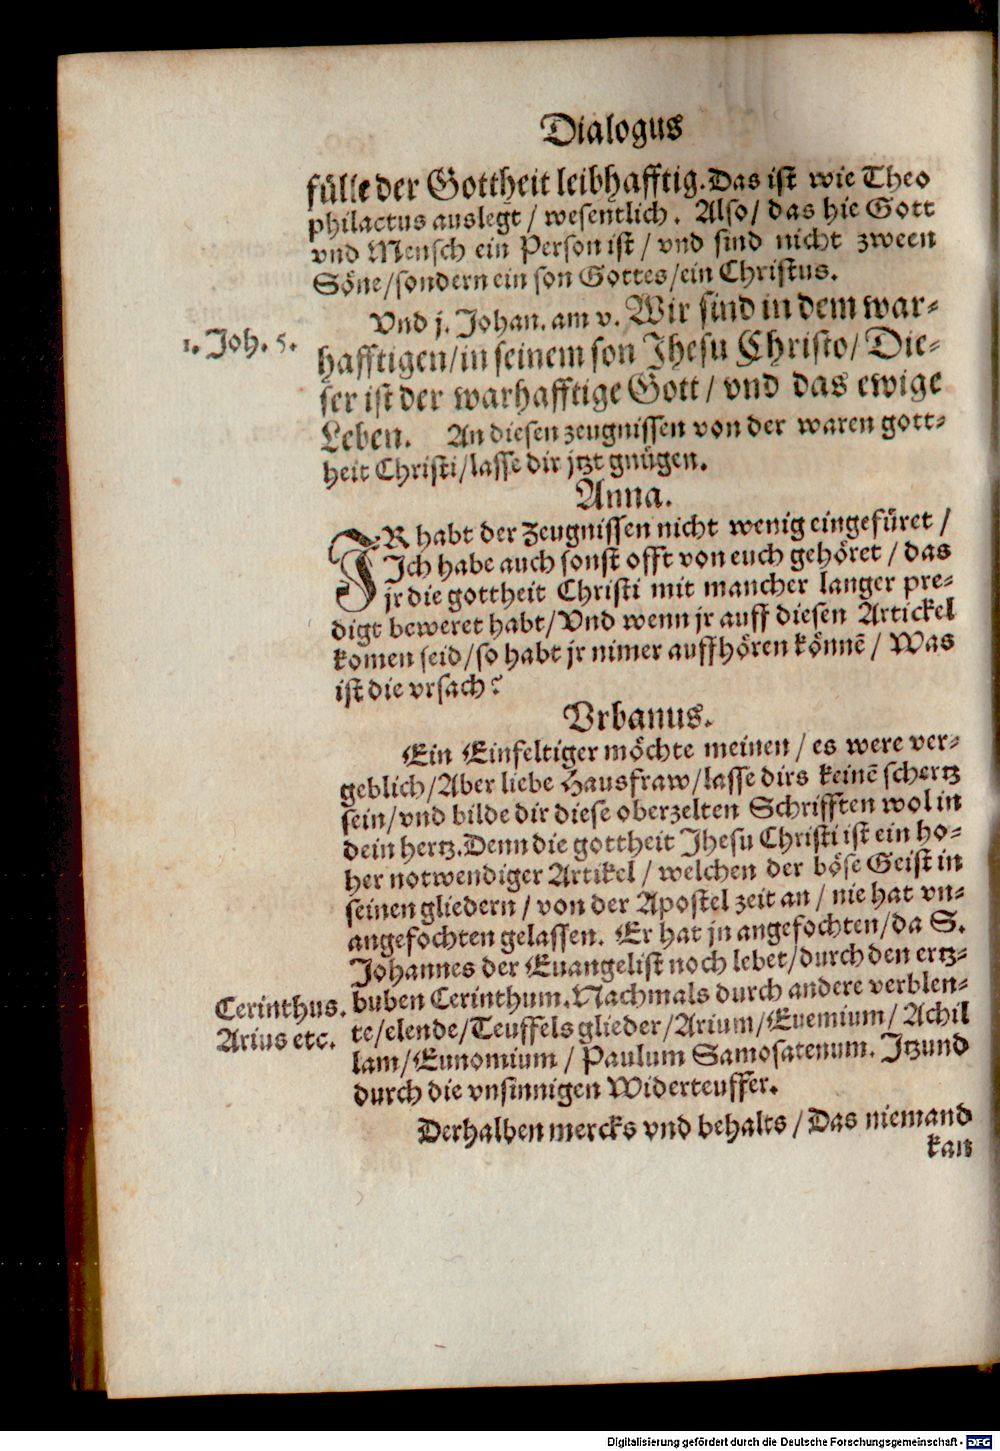 Dialogus
fülle der Gottheit leibhafftig. Das ist wie Theo
philactus auslegt / wesentlich. Also / das hie Gott
vnd Mensch ein Person ist / vnd sind nicht zween
Söne / sondern ein son Gottes / ein Christus.
Vnd j. Johan. am v. Wir sind in dem war-
1. Joh. 5.
hafftigen / in seinem son Jhesu Christo / Die-
ser ist der warhafftige Gott / vnd das ewige
Leben. An diesen zeugnissen von der waren gott-
heit Christi / lasse dir jtzt gnügen.
Anna.
IR habt der Zeugnissen nicht wenig eingefüret /
Ich habe auch sonst offt von euch gehöret / das
jr die gottheit Christi mit mancher langer pre-
digt beweret habt / Vnd wenn jr auff diesen Artickel
komen seid / so habt jr nimer auffhören könnē / Was
ist die vrsach?
Vrbanus.
Ein Einfeltiger möchte meinen / es were ver-
geblich / Aber liebe Hausfraw / lasse dirs keinē schertz
sein / vnd bilde dir diese oberzelten Schrifften wol in
dein hertz. Denn die gottheit Jhesu Christi ist ein ho-
her notwendiger Artikel / welchen der böse Geist in
seinen gliedern / von der Apostel zeit an / nie hat vn-
angefochten gelassen. Er hat jn angefochten / da S.
Johannes der Euangelist noch lebet / durch den ertz-
Cerinthus.
buben Cerinthum. Nachmals durch andere verblen-
Arius etc.
te / elende / Teuffels glieder / Arium / Euemium / Achil
lam / Eunomium / Paulum Samosatenum. Jtzund
durch die vnsinnigen Widerteuffer.
Derhalben mercks vnd behalts / Das niemand
kan
Digitalisierung gefördert durch die Deutsche Forschungsgemeinschaft - DFG